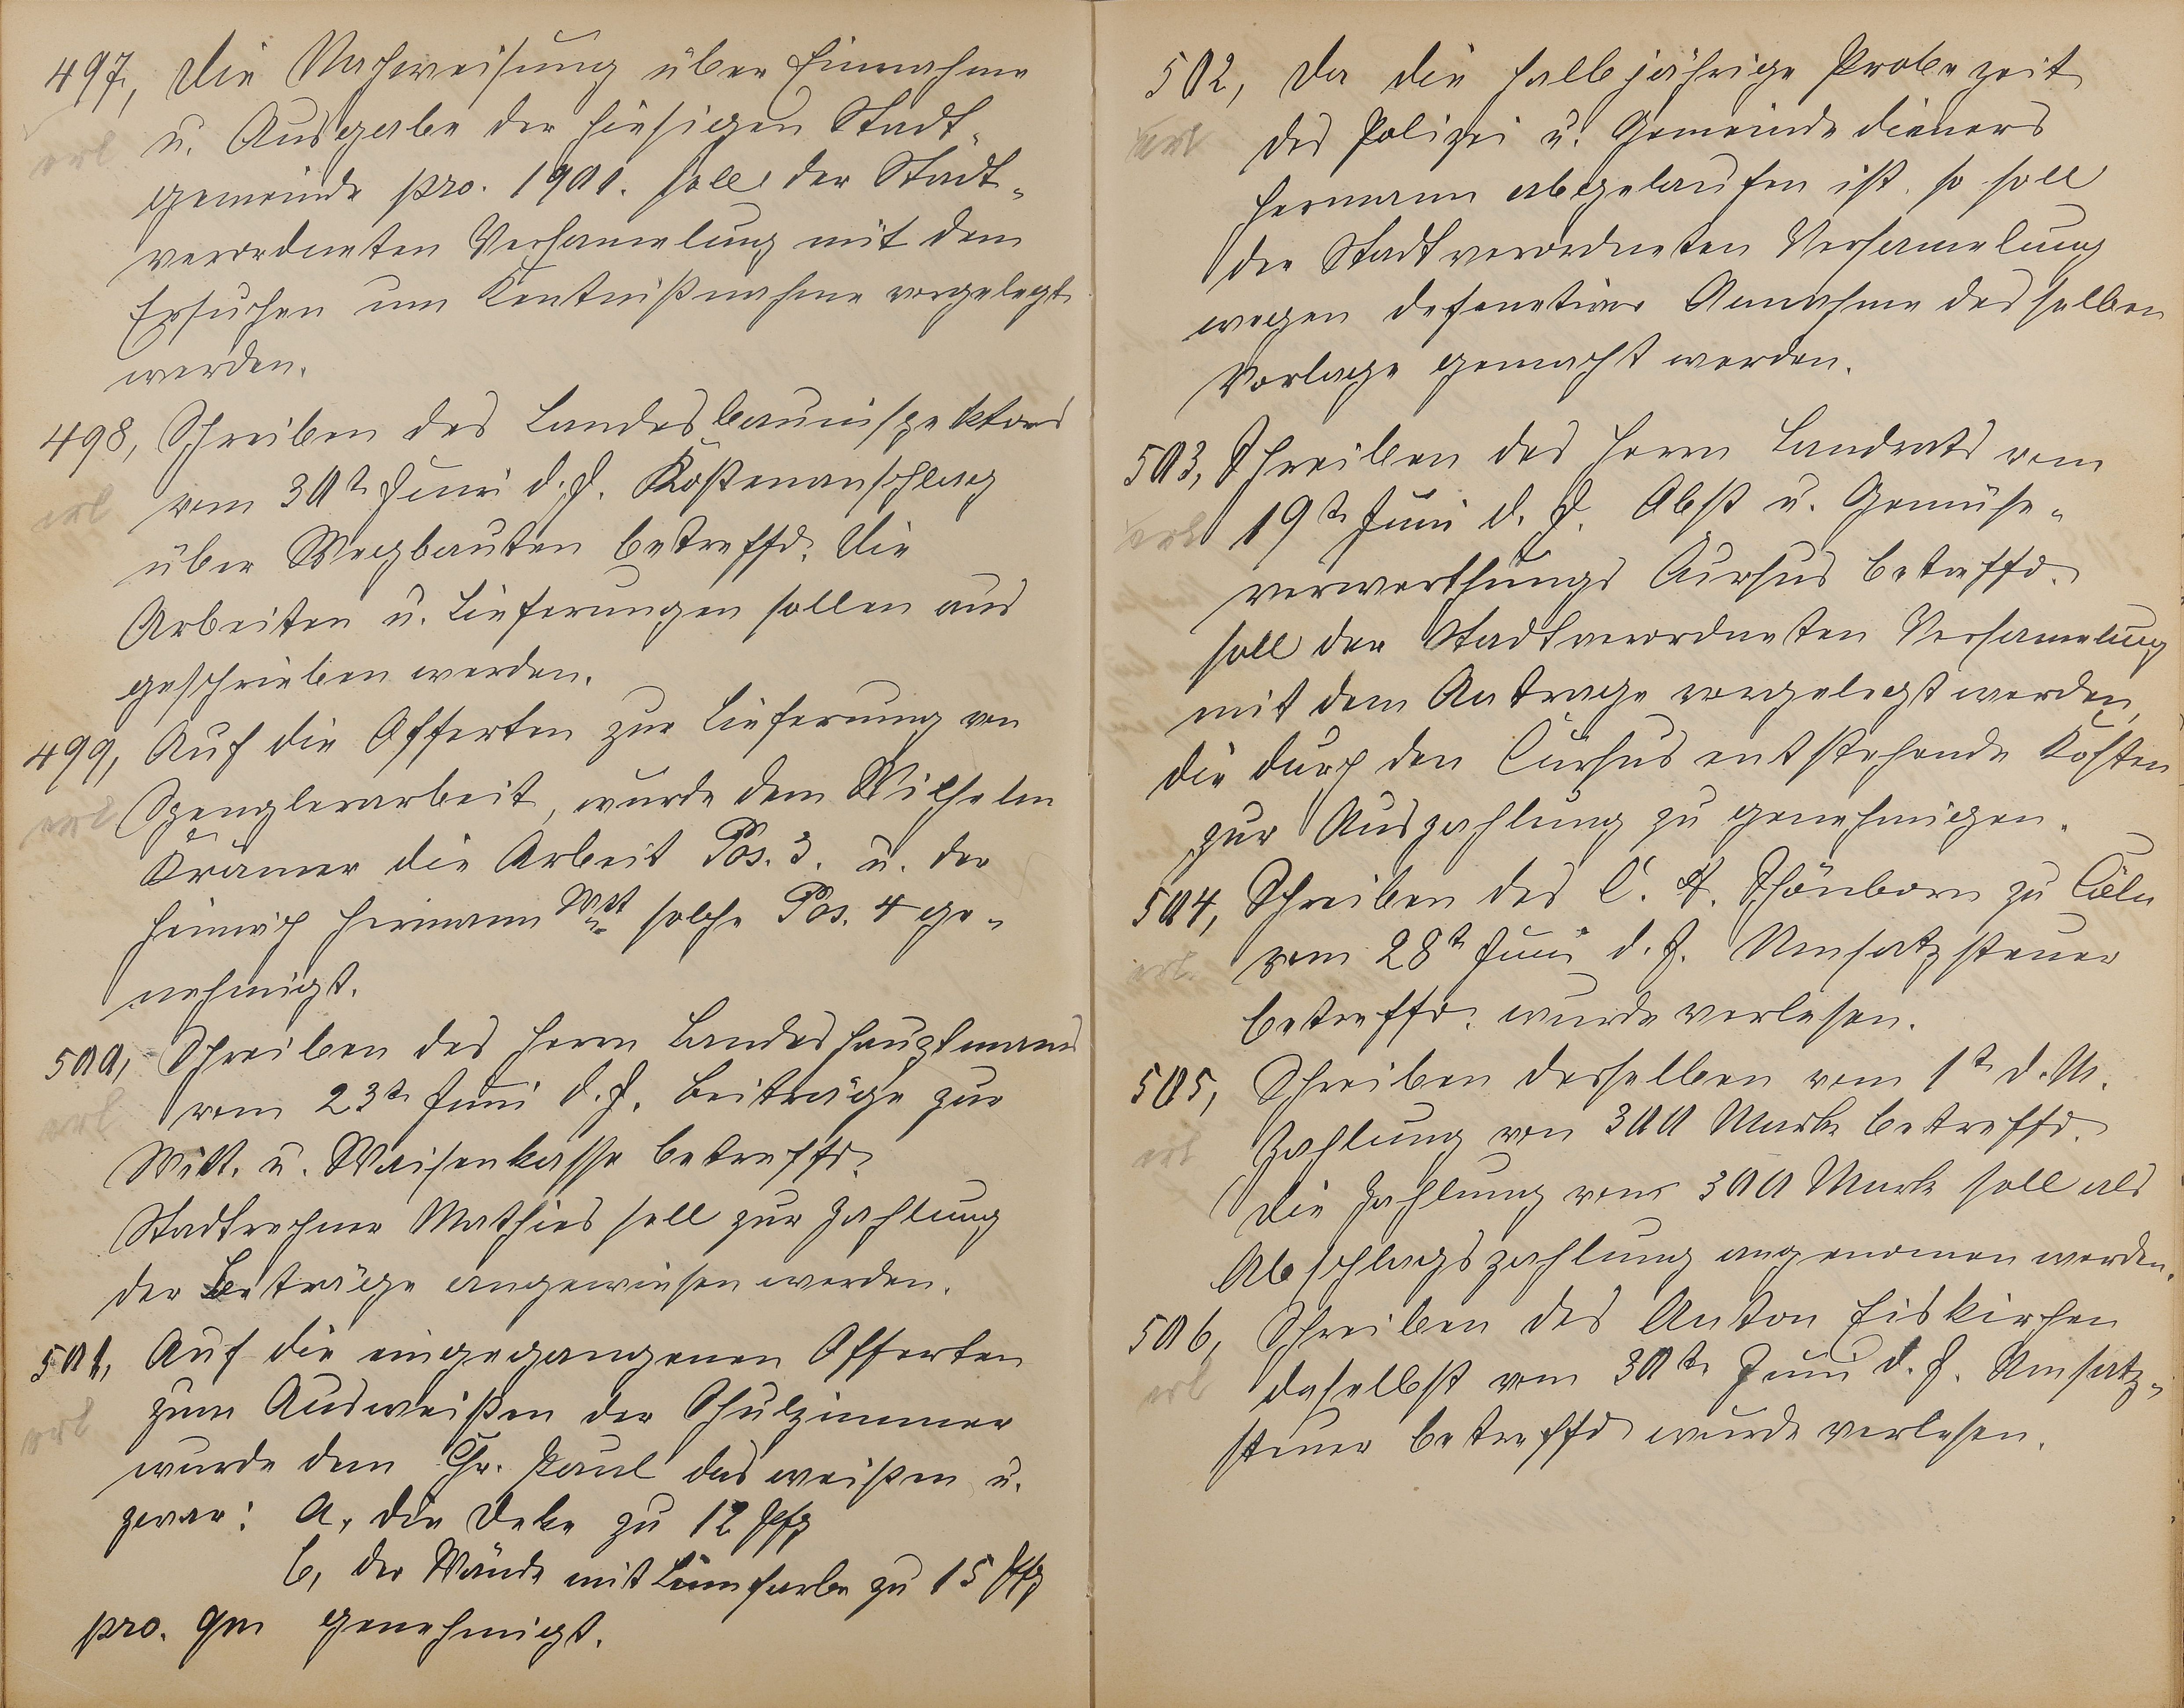 497, Die Nachweisung über Einnahme
erl u. Ausgabe der hiesigen Stadt-
gemeinde pro. 1901. soll der Stadt-
verordneten Versamelung mit dem
Ersuchen um Kentnißnahme vorgelegt
werden.
498, Schreiben des Landesbauinspektors
erl vom 30t Juni d. J. Kostenanschlag
über Wegbauten betreffd. Die
Arbeiten u. Lieferungen sollen aus
geschrieben werden.
499, Auf die Offerten zur Lieferung von
erl Spenglerarbeit, wurde dem Wilhelm
Krämer die Arbeit Pos. 3. u. der
Heinrich Hermann Wtt solche Pos. 4 ge-
nehmigt.
500, Schreiben des Herrn Landeshauptmanns
erl vom 23t Juni d. J. Beiträge zur
Witt. u. Waisenkasse betreffd.
Stadtrechner Mathies soll zur Zahlung
der Beträge angewiesen werden.
501, Auf die eingegangenen Offerten
erl zum Ausweißen der Schulzimmer
wurde dem Chr. Paul das weißen u.
zwar: a, die Deke zu 12 Pfg
b, der Wände mit Leimfarbe zu 15 Pfg
pro. qm genehmigt.
502, Da die halbjährige Probezeit
erl des Polizei u. Gemeindedieners
Hermann abgelaufen ist. so soll
der Stadtverordneten Versamelung
wegen defenetiver Annahme desselben
Vorlage gemacht werden.
503, Schreiben des Herrn Landrats vom
erl 19t Juni d. J. Obst u. Gemüse-
verwerthungs Cursus betreffd.
soll der Stadtverordneten Versamelung
mit dem Antrage vorgelegt werden,
die durch den Cursus entstehende Kosten
zur Auszahlung zu genehmigen.
504, Schreiben des C. A. Schönborn zu Cöln
erl. vom 28t Juni d. J. Umsatzsteuer
betreffd. wurde verlesen.
505, Schreiben desselben vom 1t d. M.
erl Zahlung von 300 Mark betreffd.
Die Zahlung von 300 Mark soll als
Abschlagszahlung angenomen werden.
506, Schreiben des Anton Eiskirchen
erl daselbst vom 30t Juni d. J. Umsatz-
steuer betreffd wurde verlesen.